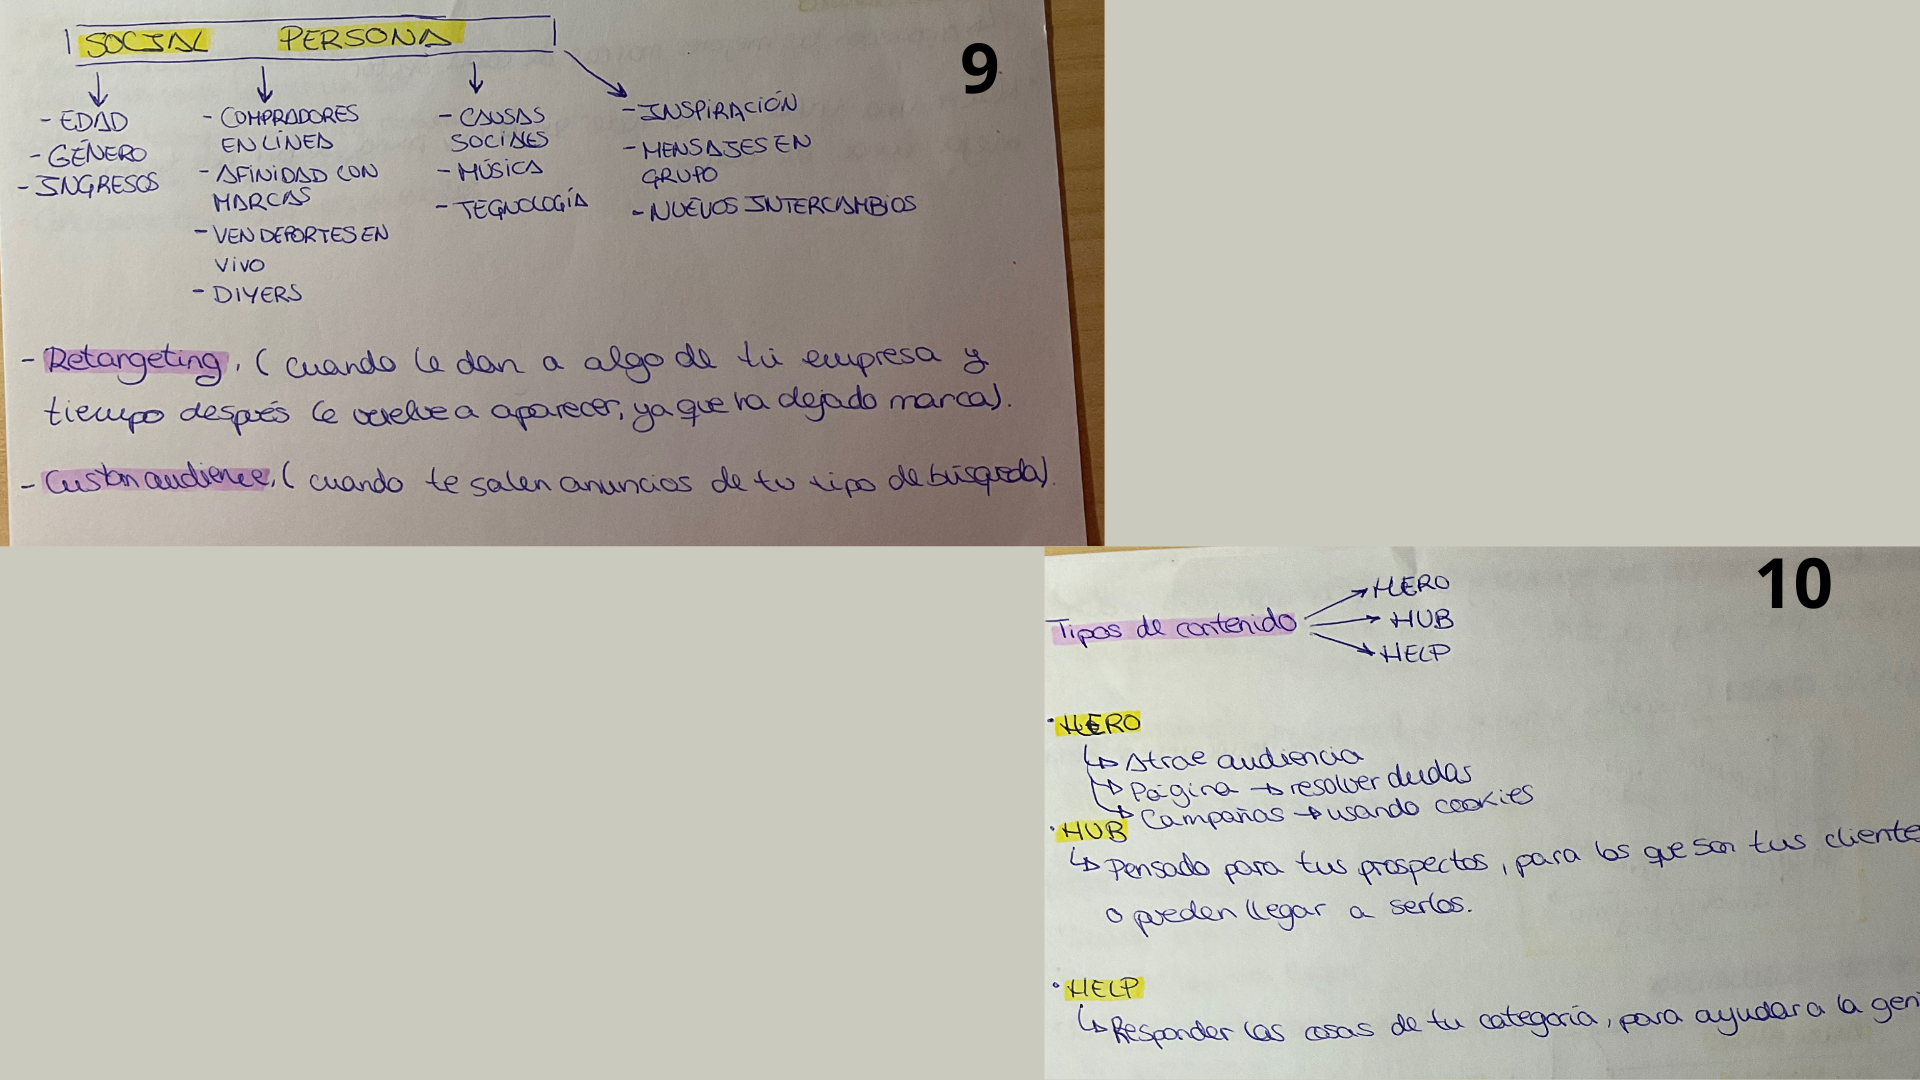 SOCIAL PERSONA
9
- EDAD
- GÉNERO
- INGRESOS
- COMPRADORES
EN LÍNEA
- AFINIDAD CON
MARCAS
- VEN DEPORTES EN
VIVO
- DIYERS
- CAUSAS
SOCIALES
- MÚSICA
- TECNOLOGÍA
- INSPIRACIÓN
- MENSAJES EN
GRUPO
- NUEVOS INTERCAMBIOS
- Retargeting. ( cuando le dan a algo de tu empresa y
tiempo después le vuelve a aparecer, ya que ha dejado marca).
- Custom audience, ( cuando te salen anuncios de tu tipo de búsqueda).
10
Tipos de contenido
HERO
HUB
HELP
· HERO
↳ Atrae audiencia
↳ Página → resolver dudas
↳ Campañas → usando cookies
· HUB
↳ Pensado para tus prospectos, para los que son tus cliente
o pueden llegar a serlos.
· HELP
↳ Responder las cosas de tu categoría, para ayudar a la gen